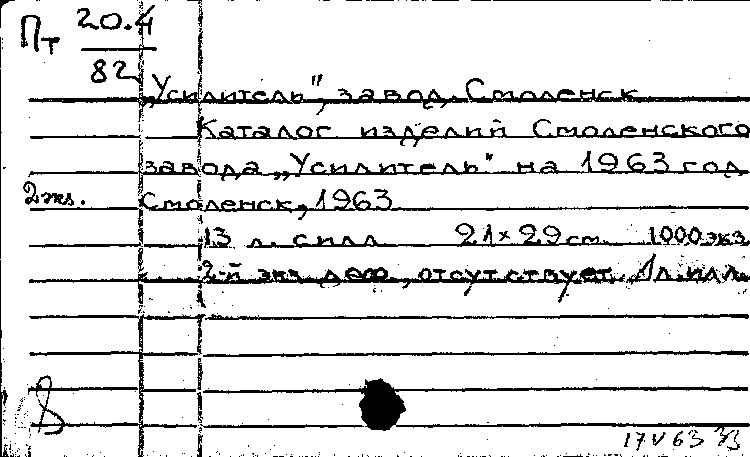 Пт 20.4
82
„Усилитель", завод, Смоленск
Каталог изделий Смоленского
завода „Усилитель" на 1963 год
2 экз. Смоленск, 1963
13 л. с илл 21×29 см. 1000 экз
2-й экз деф, отсутствует 1 л. илл.
17 V 63